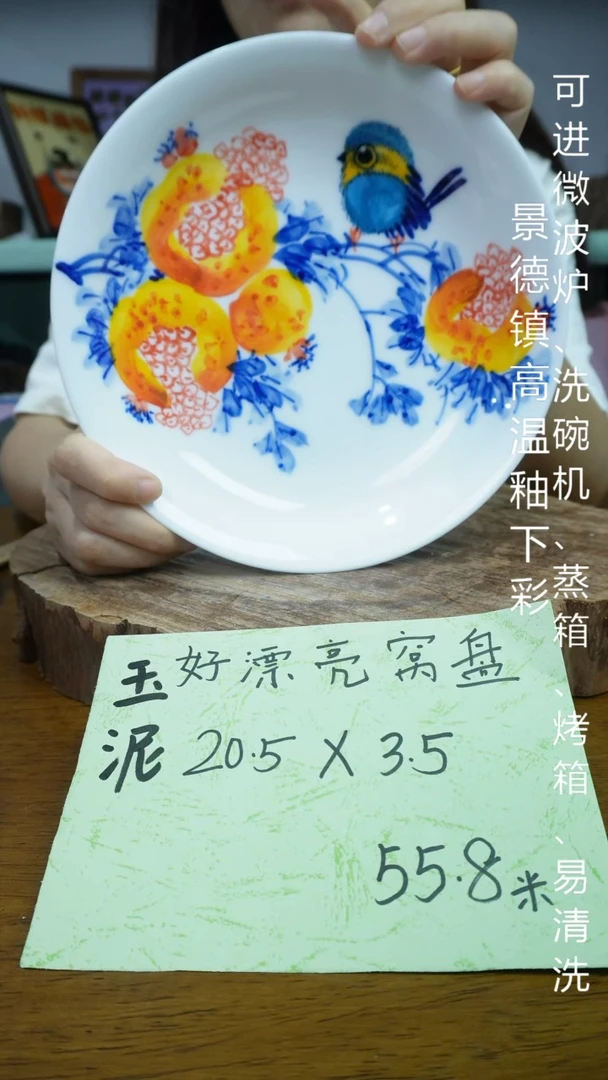 可进微波炉、洗碗机、蒸箱、烤箱、易清洗
景德镇高温釉下彩
玉泥
好漂亮窝盘
20.5 X 3.5
55.8米